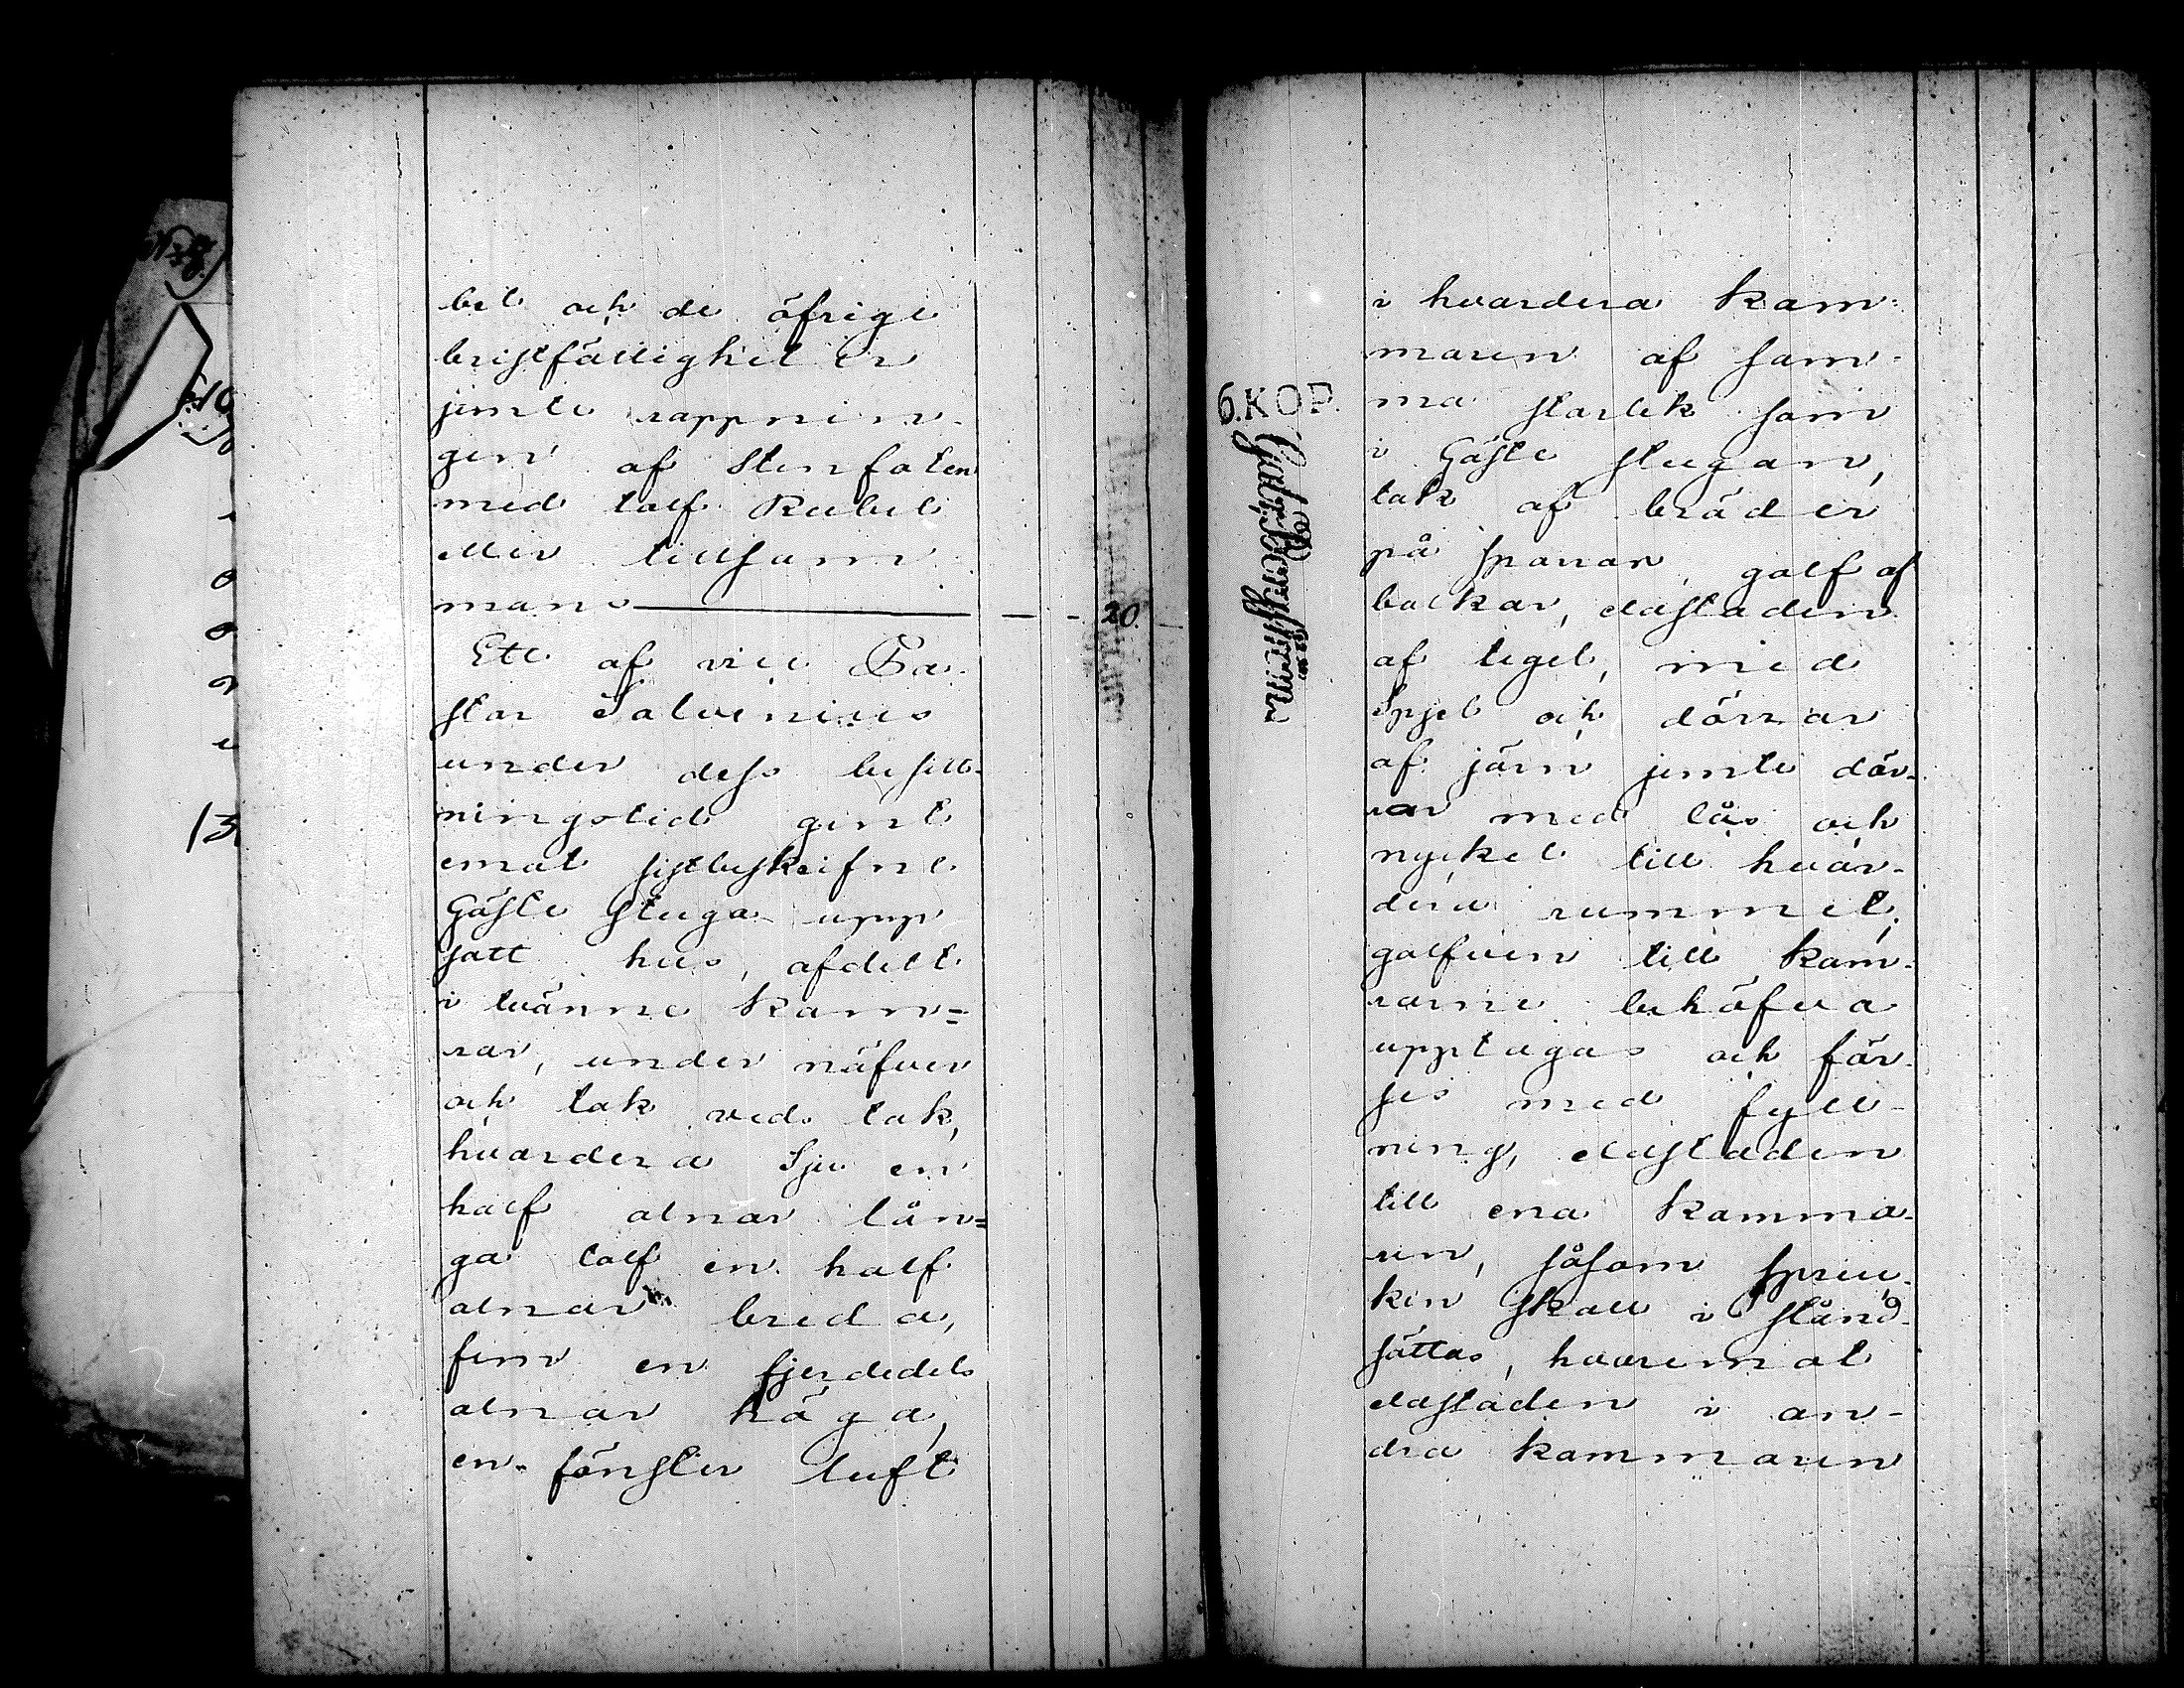 bel och de öfrige
bristfälligheter
jemte rappnin-
gen af Stenfoten
med tolf Rubel
eller tillsam
mans — — - 20. —
Ett af vice Pa-
stor Salvenius
under dess besitt-
ningstid gent
emot sistbeskrifne
Gäste stuga upp
satt hus, afdelt
i tvänne kam=
rar, under näfver
och tak veds tak,
hvardera Sju en
half alnar lån=
ga tolf en half
alnar breda,
fem en fjerdedels
alnar höga,
en fönster luft
6.KOP.
i hvardera Kam-
maren af sam-
ma storlek som
i Gäste stugan,
tak af bräder
på sparrar, golf af
balkar, eldstaden
af tegel, med
Spjel och dörrar
af järn jemte dör-
rar med lås och
nyckel till hvar-
dera rummet,
golfven till kam-
rarne behöfva
upptagas och för-
ses med fyll-
ning, eldstaden
till ena kamma-
ren, såsom spruc-
ken skall i stånd
sättas, hvaremot
eldstaden i an-
dra kammaren